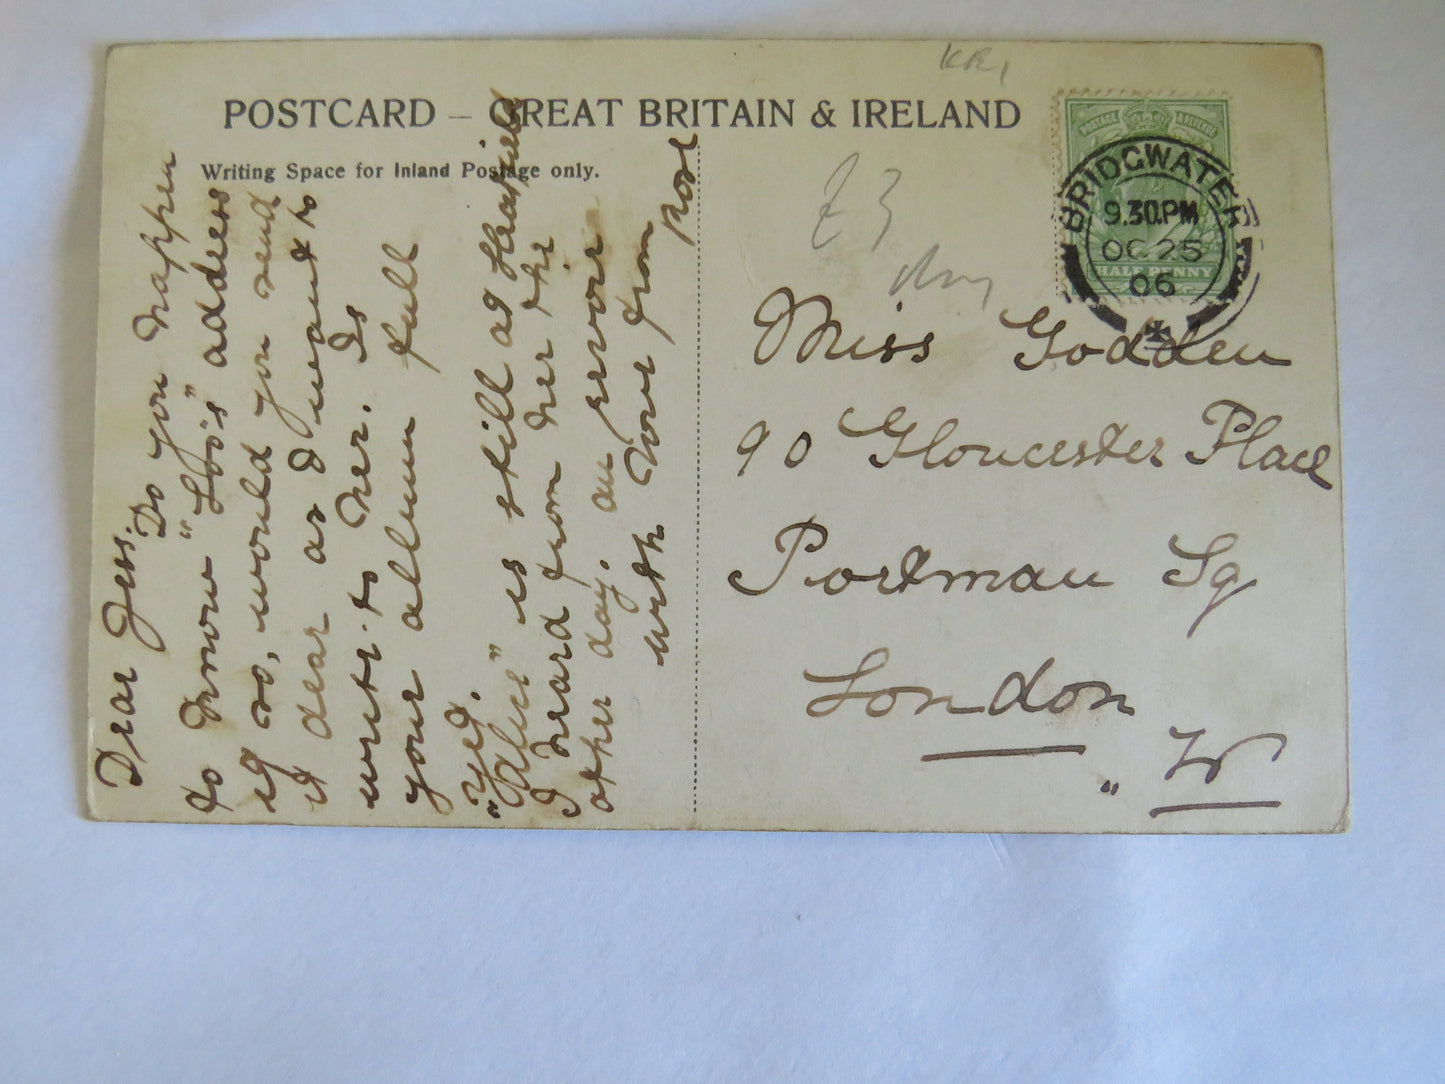 POSTCARD – GREAT BRITAIN & IRELAND
Writing Space for Inland Postage only.
Dear Jess.
Do you happen
to know "Loo's" address
if so, would you send
it dear as I want to
write to her. Is
your album full
yet.
"Alice" is still at
I heard from her the
other day. au revoir
with love from
Miss Godden
90 Gloucester Place
Portman Sq
London
" W
£3
POSTAGE & REVENUE
HALF PENNY
BRIDGWATER
9.30.PM
OC 25
06